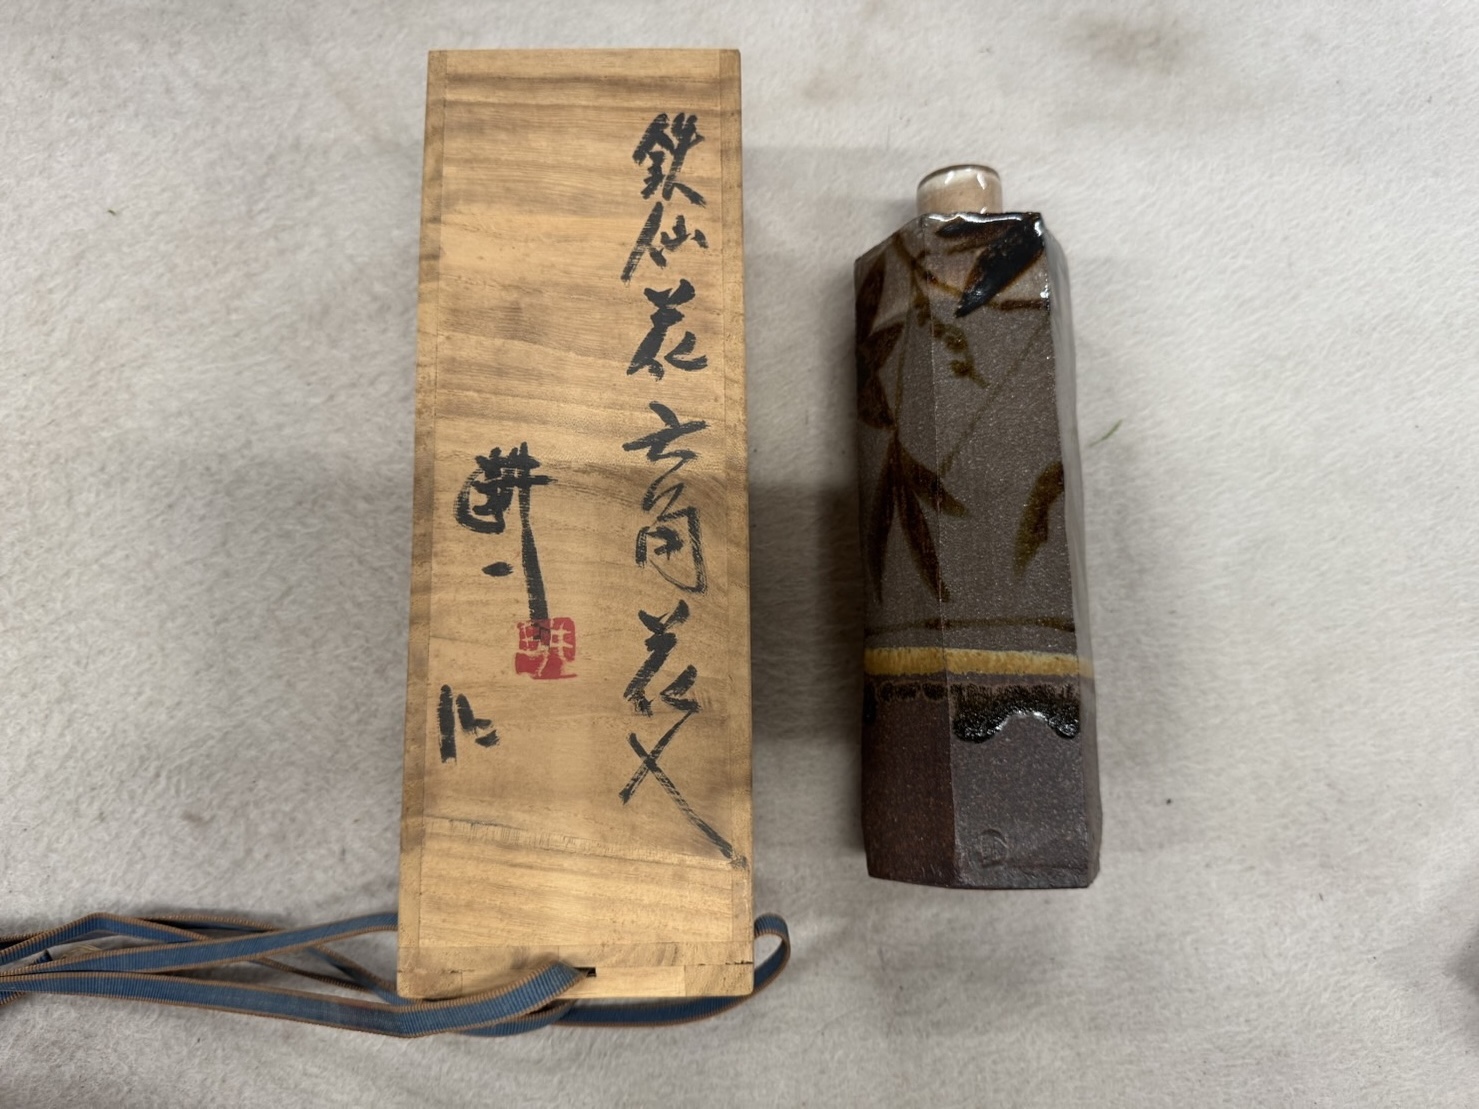 鉄仙花六角花入
耕一
作